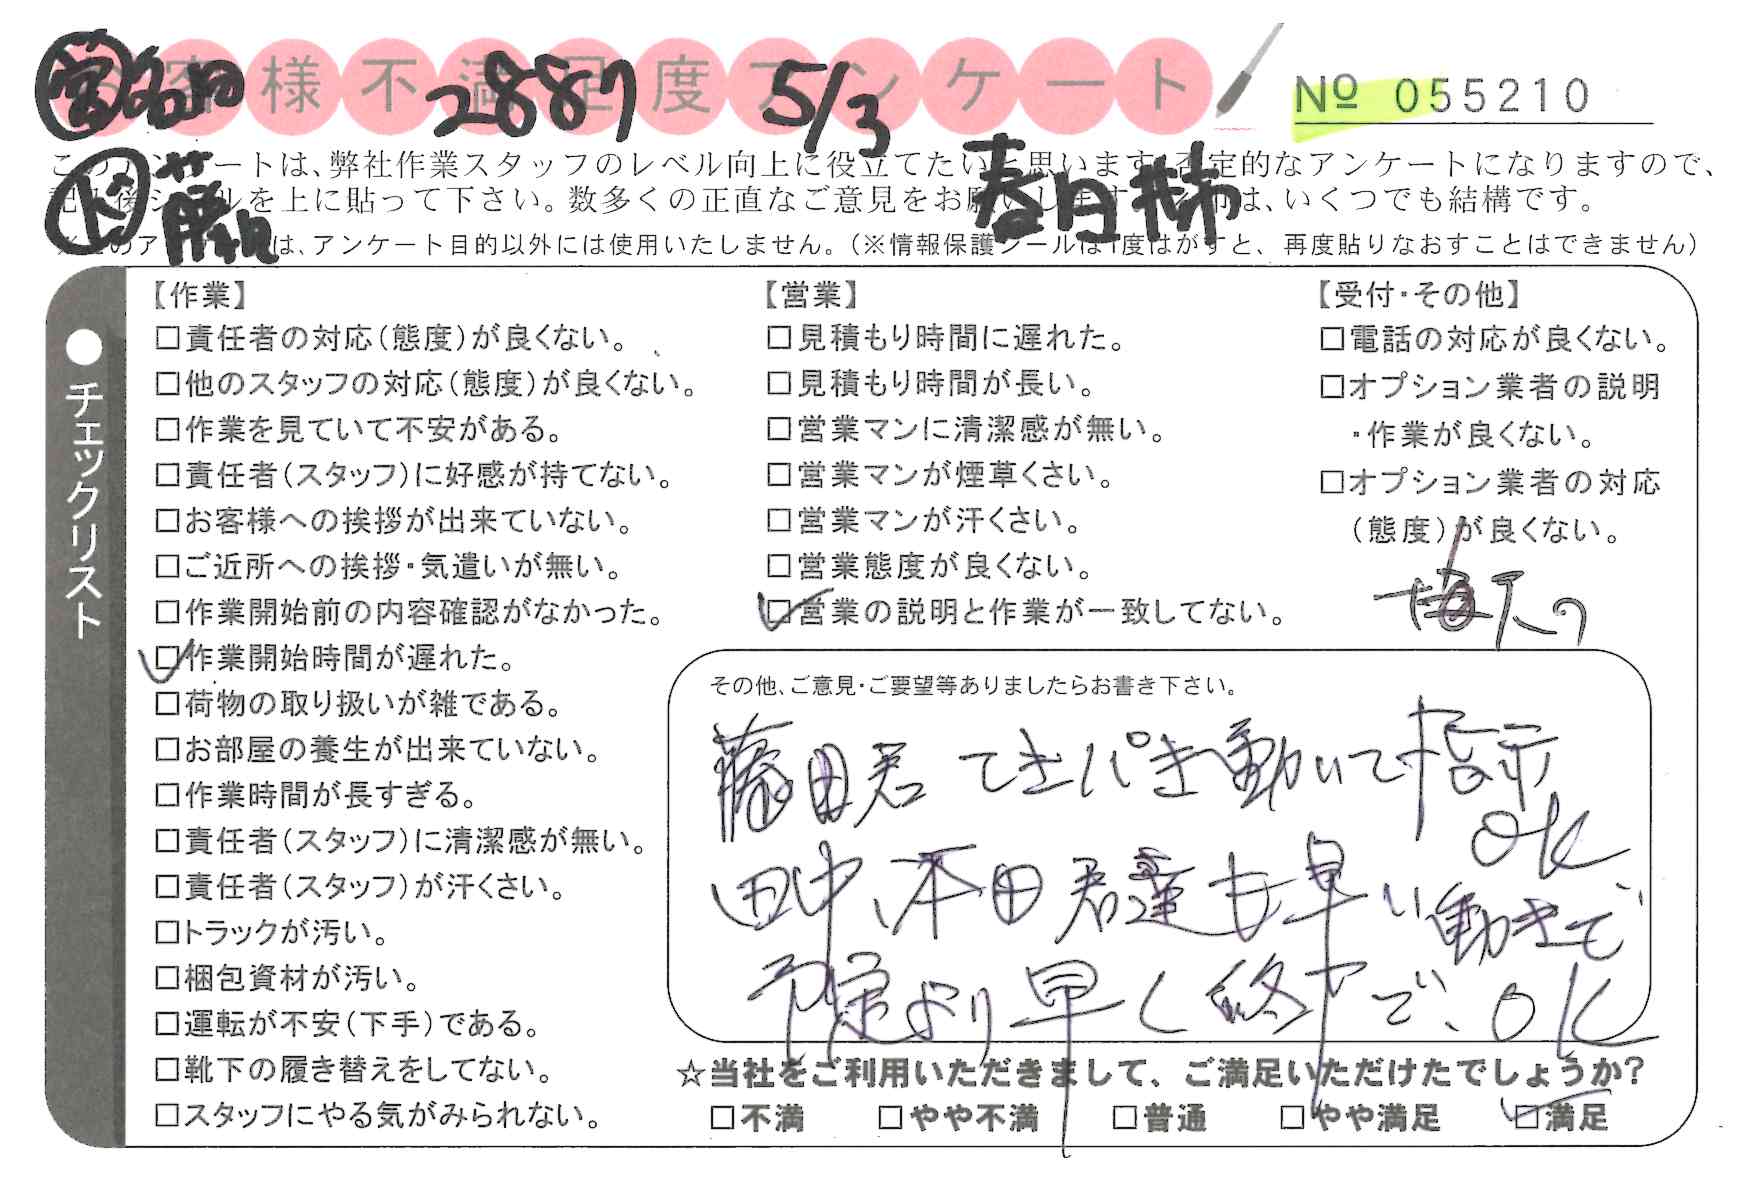 お客様不満足度アンケート
2887 5/3
№ 055210
このアンケートは、弊社作業スタッフのレベル向上に役立てたいと思います。否定的なアンケートになりますので、
後シールを上に貼って下さい。数多くの正直なご意見をお願いします。は、いくつでも結構です。
春日井市
※このアンケートは、アンケート目的以外には使用いたしません。（※情報保護シールは1度はがすと、再度貼りなおすことはできません）
●チェックリスト
【作業】
□責任者の対応（態度）が良くない。
□他のスタッフの対応（態度）が良くない。
□作業を見ていて不安がある。
□責任者（スタッフ）に好感が持てない。
□お客様への挨拶が出来ていない。
□ご近所への挨拶・気遣いが無い。
□作業開始前の内容確認がなかった。
☑作業開始時間が遅れた。
□荷物の取り扱いが雑である。
□お部屋の養生が出来ていない。
□作業時間が長すぎる。
□責任者（スタッフ）に清潔感が無い。
□責任者（スタッフ）が汗くさい。
□トラックが汚い。
□梱包資材が汚い。
□運転が不安（下手）である。
□靴下の履き替えをしてない。
□スタッフにやる気がみられない。
【営業】
□見積もり時間に遅れた。
□見積もり時間が長い。
□営業マンに清潔感が無い。
□営業マンが煙草くさい。
□営業マンが汗くさい。
□営業態度が良くない。
☑営業の説明と作業が一致してない。
【受付・その他】
□電話の対応が良くない。
□オプション業者の説明
・作業が良くない。
□オプション業者の対応
（態度）が良くない。
その他、ご意見・ご要望等ありましたらお書き下さい。
藤田君 てきパき動いて指示
OK
田中、本田君達も早い動きで
予定より早く終了で、OK
☆当社をご利用いただきまして、ご満足いただけたでしょうか？
□不満 □やや不満 □普通 □やや満足 ☑満足